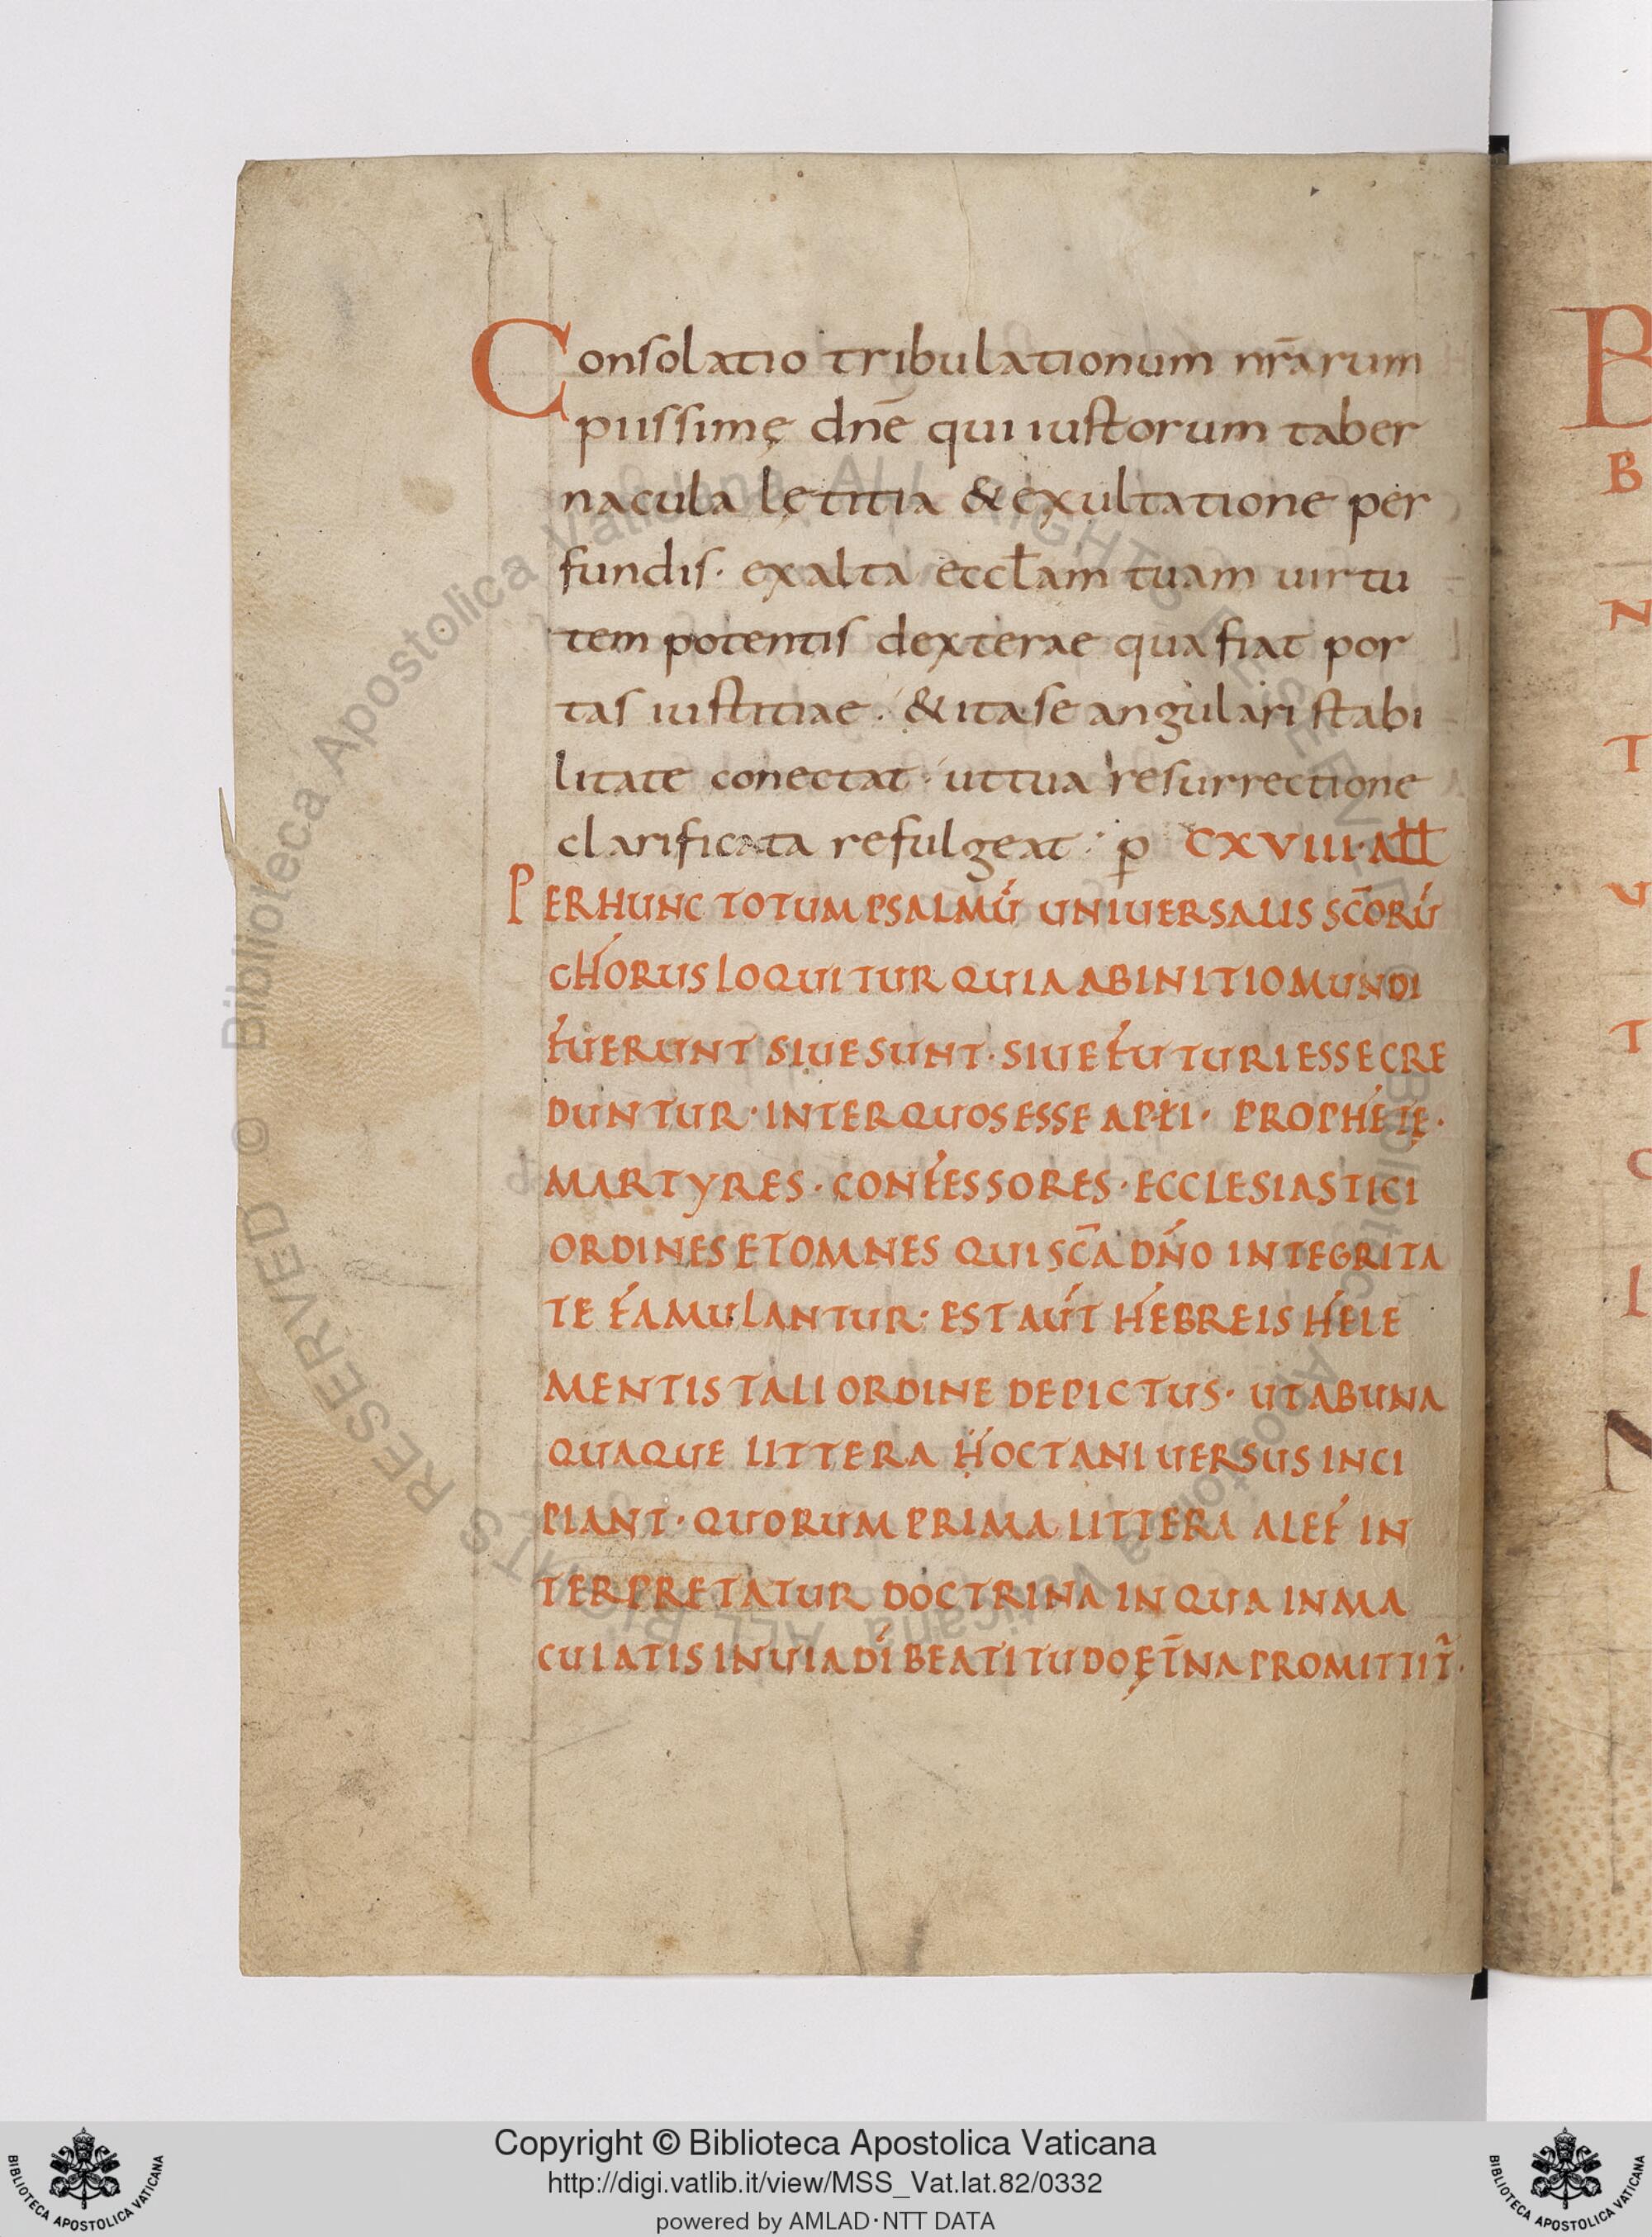 Consolatio tribulationum nr̄arum
piissimę dn̄e qui iustorum taber
nacula lętitia & exultatione per
fundis· exalta eccłam tuam uirtu
tem potentis dexterae qua fiat por
tas iustitiae· & ita se angulari stabi
litate conectat· ut tua resurrectione
clarificata refulgeat· p̄ CXVIII· ALL
PER HUNC TOTUM PSALMŪ UNIUERSALIS SC̄ORŪ
CHORUS LOQUITUR QUIA AB INITIO MUNDI
FUERUNT SIUE SUNT· SIUE FUTURI ESSE CRE
DUNTUR· INTER QUOS ESSE APŁI· PROPHETĘ·
MARTYRES· CONFESSORES· ECCLESIASTICI
ORDINES ET OMNES QUI SC̄A DN̄O INTEGRITA
TE FAMULANTUR· EST AŪT HEBREIS HELE
MENTIS TALI ORDINE DEPICTUS· UT AB UNA
QUAQUE LITTERA HOCTANI UERSUS INCI
PIANT· QUORUM PRIMA LITTERA ALEF IN
TERPRETATUR DOCTRINA IN QUA INMA
CULATIS IN UIA DĪ BEATITUDO ĘT̄NA PROMITTIT̄·
B
B
N
T
U
T
C
L
N
Biblioteca Apostolica Vaticana ALL RIGHTS RESERVED ©
Biblioteca Apostolica Vaticana ALL RIGHTS RESERVED ©
Copyright © Biblioteca Apostolica Vaticana
http://digi.vatlib.it/view/MSS_Vat.lat.82/0332
powered by AMLAD·NTT DATA
BIBLIOTECA APOSTOLICA VATICANA
BIBLIOTECA APOSTOLICA VATICANA